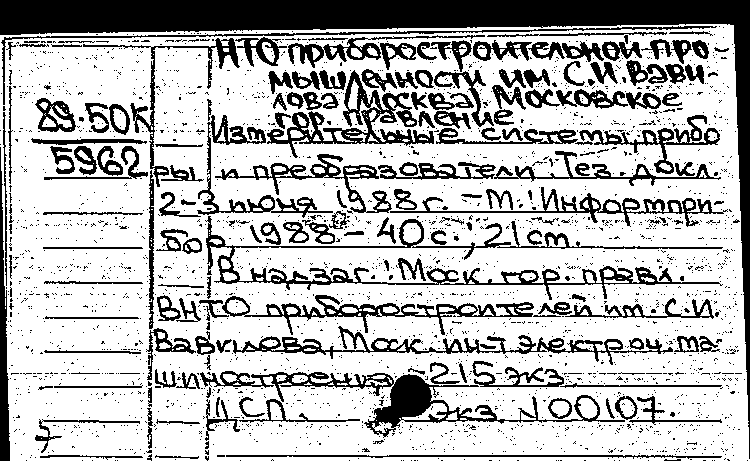 НТО приборостроительной про-
мышленности им. С.И. Вави-
лова (Москва). Московское
гор. правление.
89-50К
5962
Измерительные системы, прибо
ры и преобразователи: Тез. докл.
2-3 июня 1988 г. - М.: Информпри-
бор, 1988 - 40 с.; 21 см.
В надзаг.: Моск. гор. правл.
ВНТО приборостроителей им. С.И.
Вавилова, Моск. ин-т электрон. ма-
шиностроения 215 экз
ДСП. Экз. N 00107.